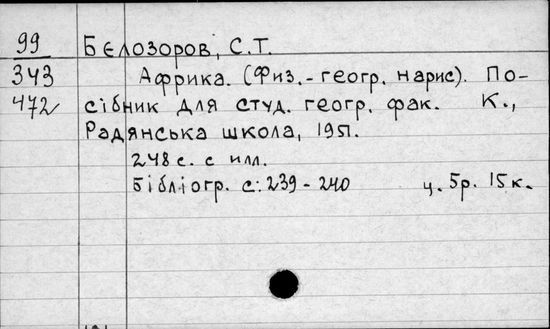 99 Бєлозоров, С.Т.
343 Африка. (Физ.-геогр. нарис). По-
472 сібник для студ. геогр. фак. К.,
Радянська школа, 1951.
248 с. с илл.
Бібліогр. с: 239-240 ц. 5р. 15к.